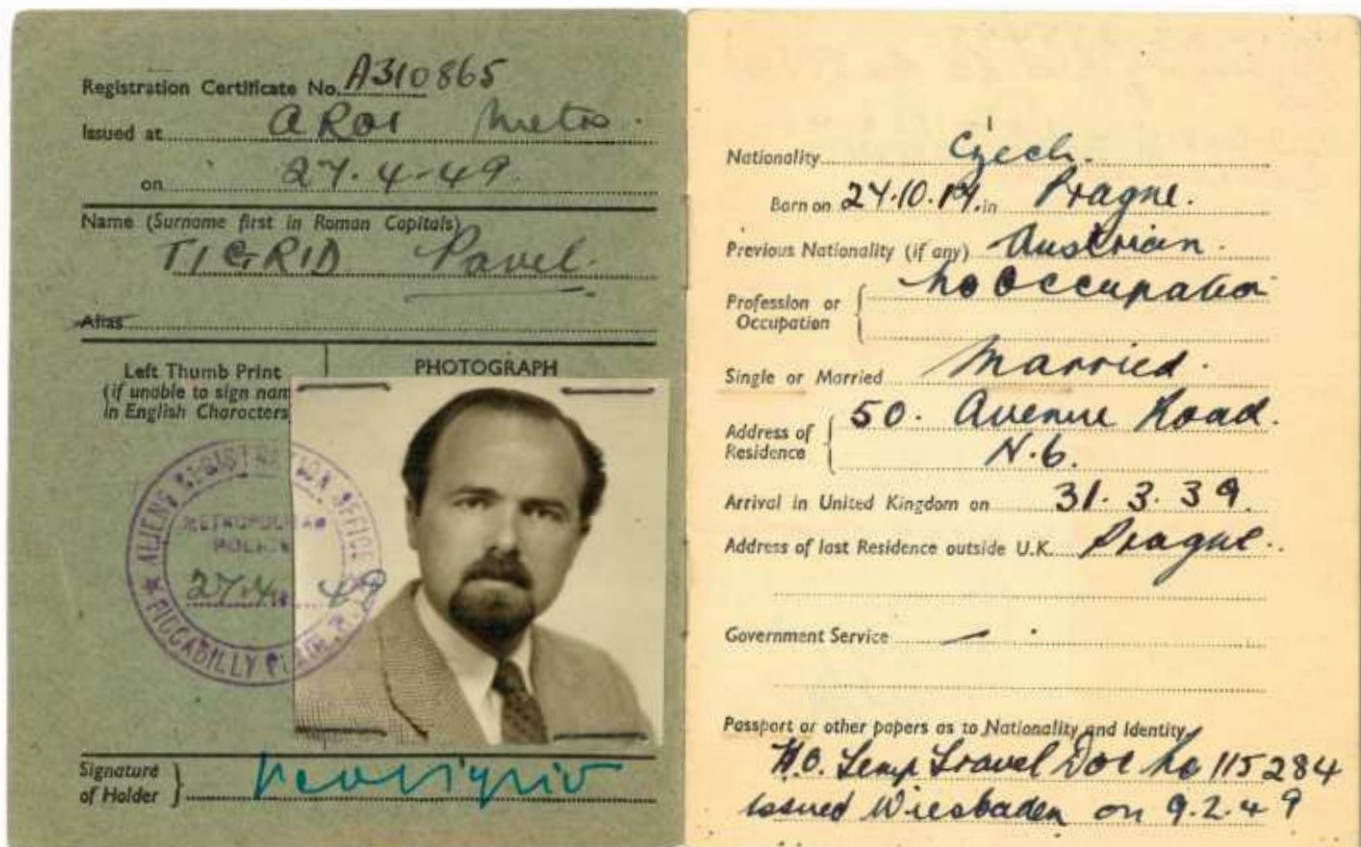 Registration Certificate No. A310865
Issued at AROI Metro.
on 27.4.49.
Name (Surname first in Roman Capitals)
TIGRID Pavel.
Alias
Left Thumb Print
(if unable to sign nam
in English Characters
PHOTOGRAPH
ALIENS REGISTRATION OFFICE
METROPOLITAN
POLICE
27.4.49
PICCADILLY
Signature
of Holder
Nationality Czech.
Born on 24.10.17. in Prague.
Previous Nationality (if any) Austrian.
Profession or
Occupation
No Occupation
Single or Married Married.
Address of
Residence
50. Avenue Road.
N.6.
Arrival in United Kingdom on 31.3.39.
Address of last Residence outside U.K. Prague.
Government Service
Passport or other papers as to Nationality and Identity
H.O. Temp Travel Doc No 115284
issued Wiesbaden on 9.2.49